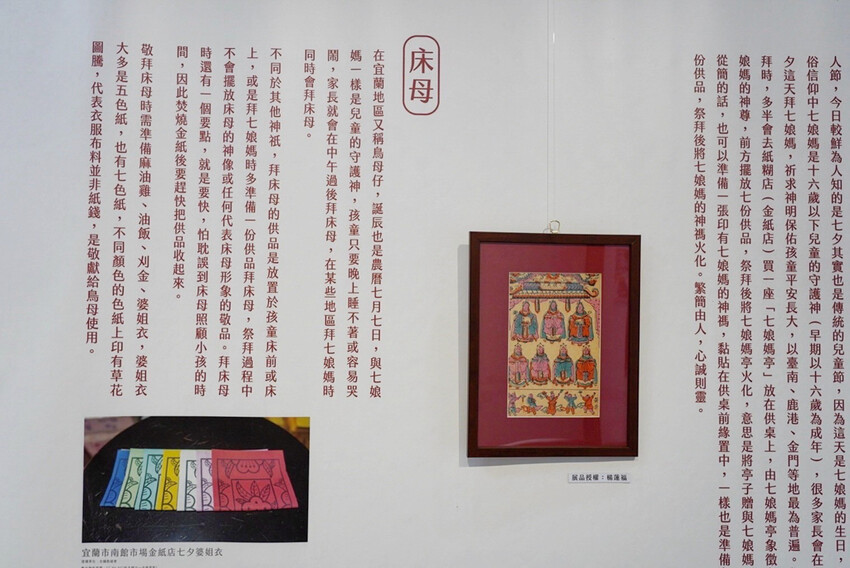 人節，今日較鮮為人知的是七夕其實也是傳統的兒童節，因為這天是七娘媽的生日，
俗信仰中七娘媽是十六歲以下兒童的守護神（早期以十六歲為成年），很多家長會在
夕這天拜七娘媽，祈求神明保佑孩童平安長大，以臺南、鹿港、金門等地最為普遍。
拜時，多半會去紙糊店（金紙店）買一座「七娘媽亭」放在供桌上，由七娘媽亭象徵
娘媽的神尊，前方擺放七份供品，祭拜後將七娘媽亭火化，意思是將亭子贈與七娘媽
從簡的話，也可以準備一張印有七娘媽的神禡，黏貼在供桌前緣置中，一樣也是準備
份供品，祭拜後將七娘媽的神禡火化。繁簡由人，心誠則靈。
床母
在宜蘭地區又稱鳥母仔，誕辰也是農曆七月七日，與七娘
媽一樣是兒童的守護神，孩童只要晚上睡不著或容易哭
鬧，家長就會在中午過後拜床母，在某些地區拜七娘媽時
同時會拜床母。
不同於其他神祇，拜床母的供品是放置於孩童床前或床
上，或是拜七娘媽時多準備一份供品拜床母，祭拜過程中
不會擺放床母的神像或任何代表床母形象的敬品。拜床母
時還有一個要點，就是要快，怕耽誤到床母照顧小孩的時
間，因此焚燒金紙後要趕快把供品收起來。
敬拜床母時需準備麻油雞、油飯、刈金、婆姐衣，婆姐衣
大多是五色紙，也有七色紙，不同顏色的色紙上印有草花
圖騰，代表衣服布料並非紙錢，是敬獻給鳥母使用。
展品授權：楊蓮福
宜蘭市南館市場金紙店七夕婆姐衣